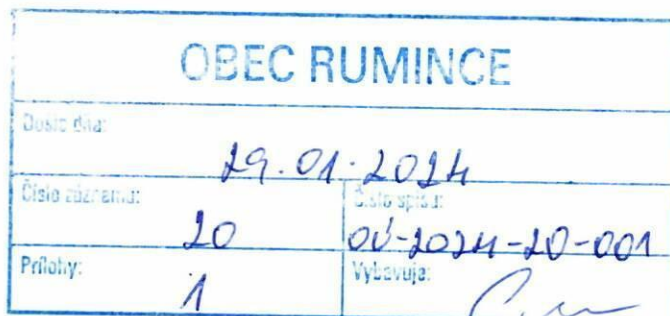 OBEC RUMINCE
Došlo dňa:
29.01.2024
Číslo záznamu:
Číslo spisu:
20
OÚ-2024-20-001
Prílohy:
Vybavuje:
1